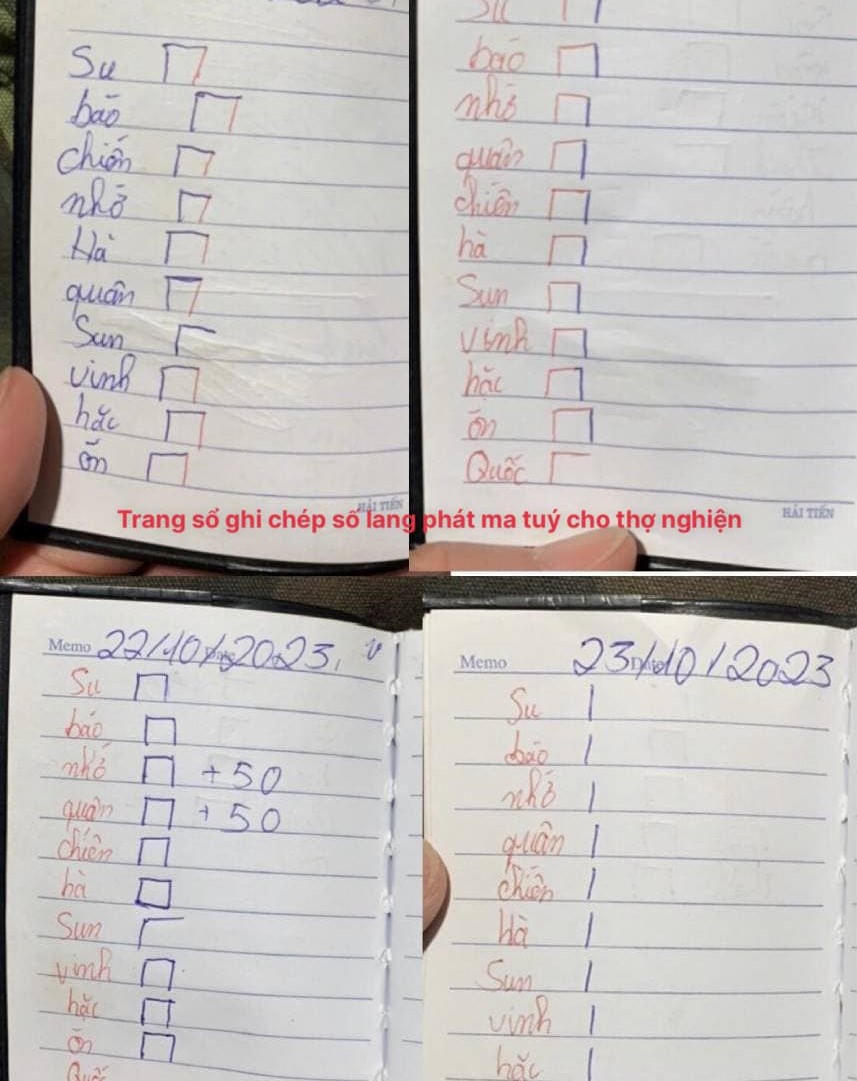 Su
bảo
chiến
nhớ
Hà
quân
Sun
vinh
hắc
ổn
HẢI TIẾN
Su
bảo
nhớ
quân
chiến
hà
Sun
Vinh
hắc
ổn
Quốc
HẢI TIẾN
Trang sổ ghi chép số lang phát ma tuý cho thợ nghiện
Memo 22/10/2023,
Su
bảo
nhớ + 50
quân + 50
chiến
hà
Sun
vinh
hắc
ổn
Quốc
Memo Date 23/10/2023
Su
bảo
nhớ
quân
chiến
Hà
Sun
vinh
hắc